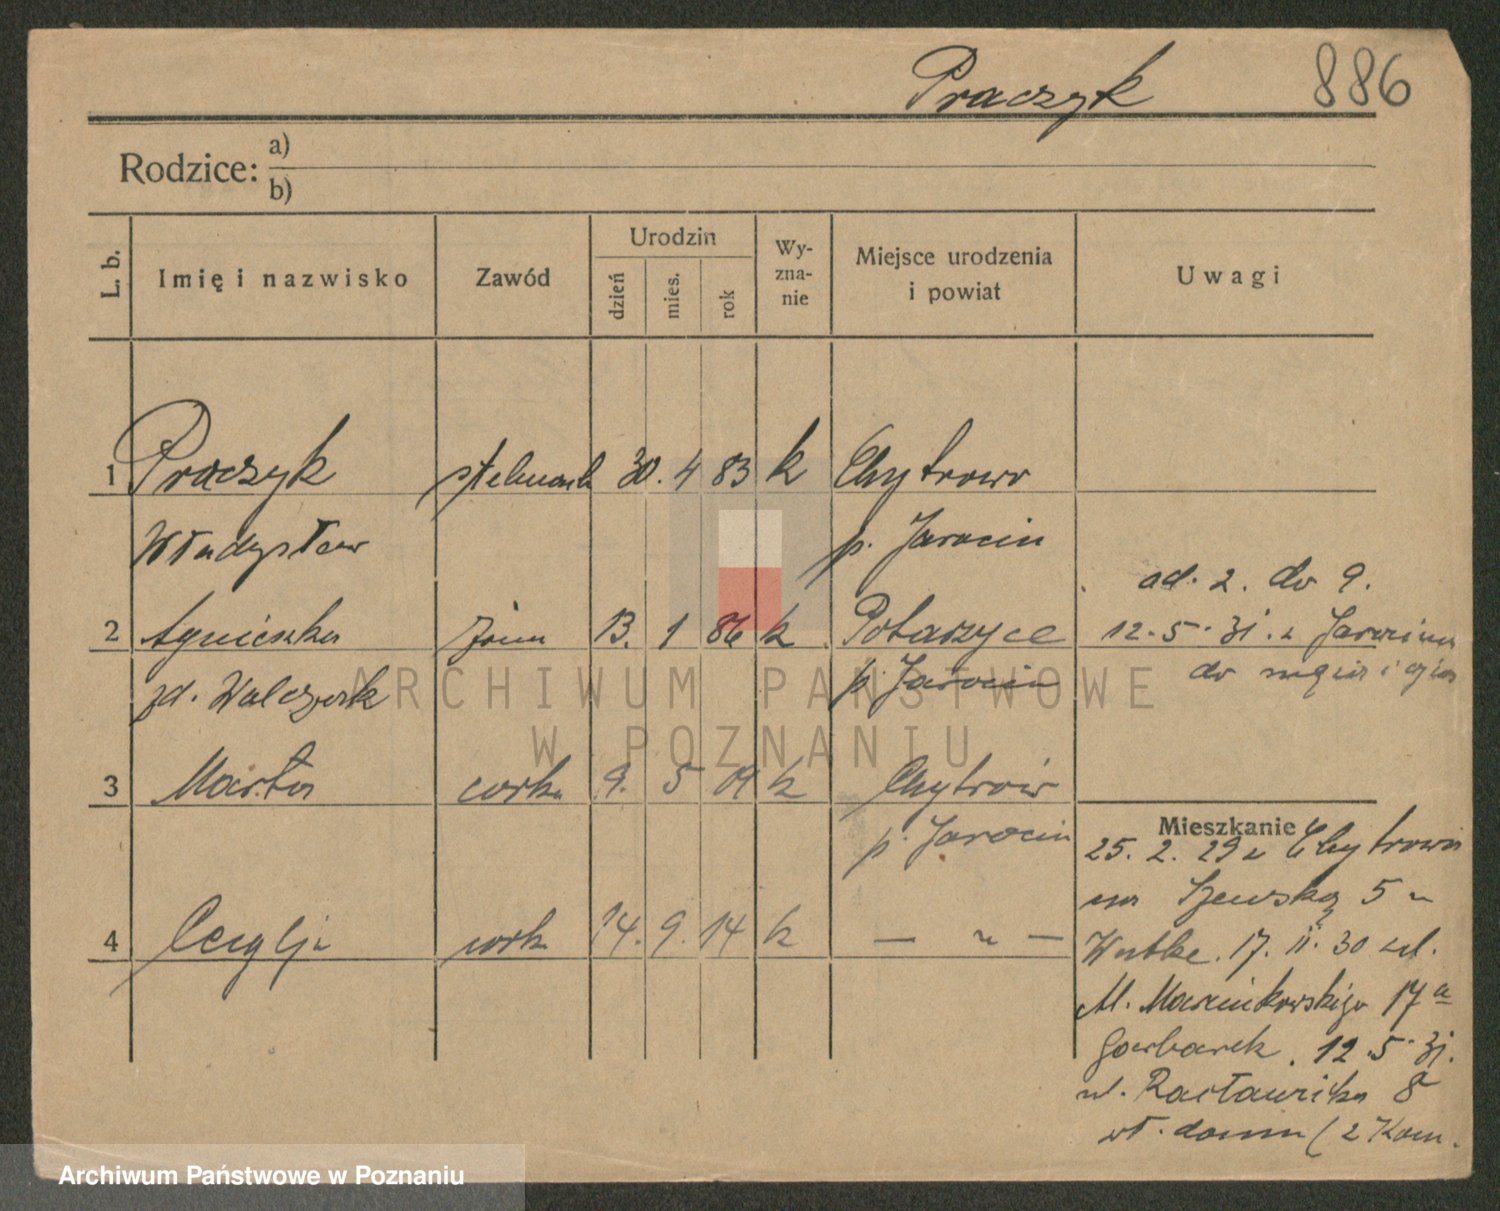 Praczyk 886
Rodzice: a)
b)
L. b. Imię i nazwisko Zawód Urodzin dzień mies. rok Wy-zna-nie Miejsce urodzenia i powiat Uwagi
1 Praczyk stelmach 30. 4 83 k Chytrowo
Władysław p. Jarocin
od. 2. do 9.
2 Agnieszka żona 13. 1 86 k Potarzyce 12.5.31. z Jarocina
zd. Walczak p. Jarocin do
3 Marta córka 9. 5 09 k Chytrów
p. Jarocin
Mieszkanie
25. 2. 29 z Chytrowa
na Szewską 5 u
4 Cecylja córka 14. 9. 14 k — " —
Wutke. 17. II. 30 ul.
M. Marcinkowskiego 17a
Garbarek. 12.5.31.
ul. Racławicka 8
wł. domu (2 Kom.
ARCHIWUM PAŃSTWOWE
W POZNANIU
Archiwum Państwowe w Poznaniu